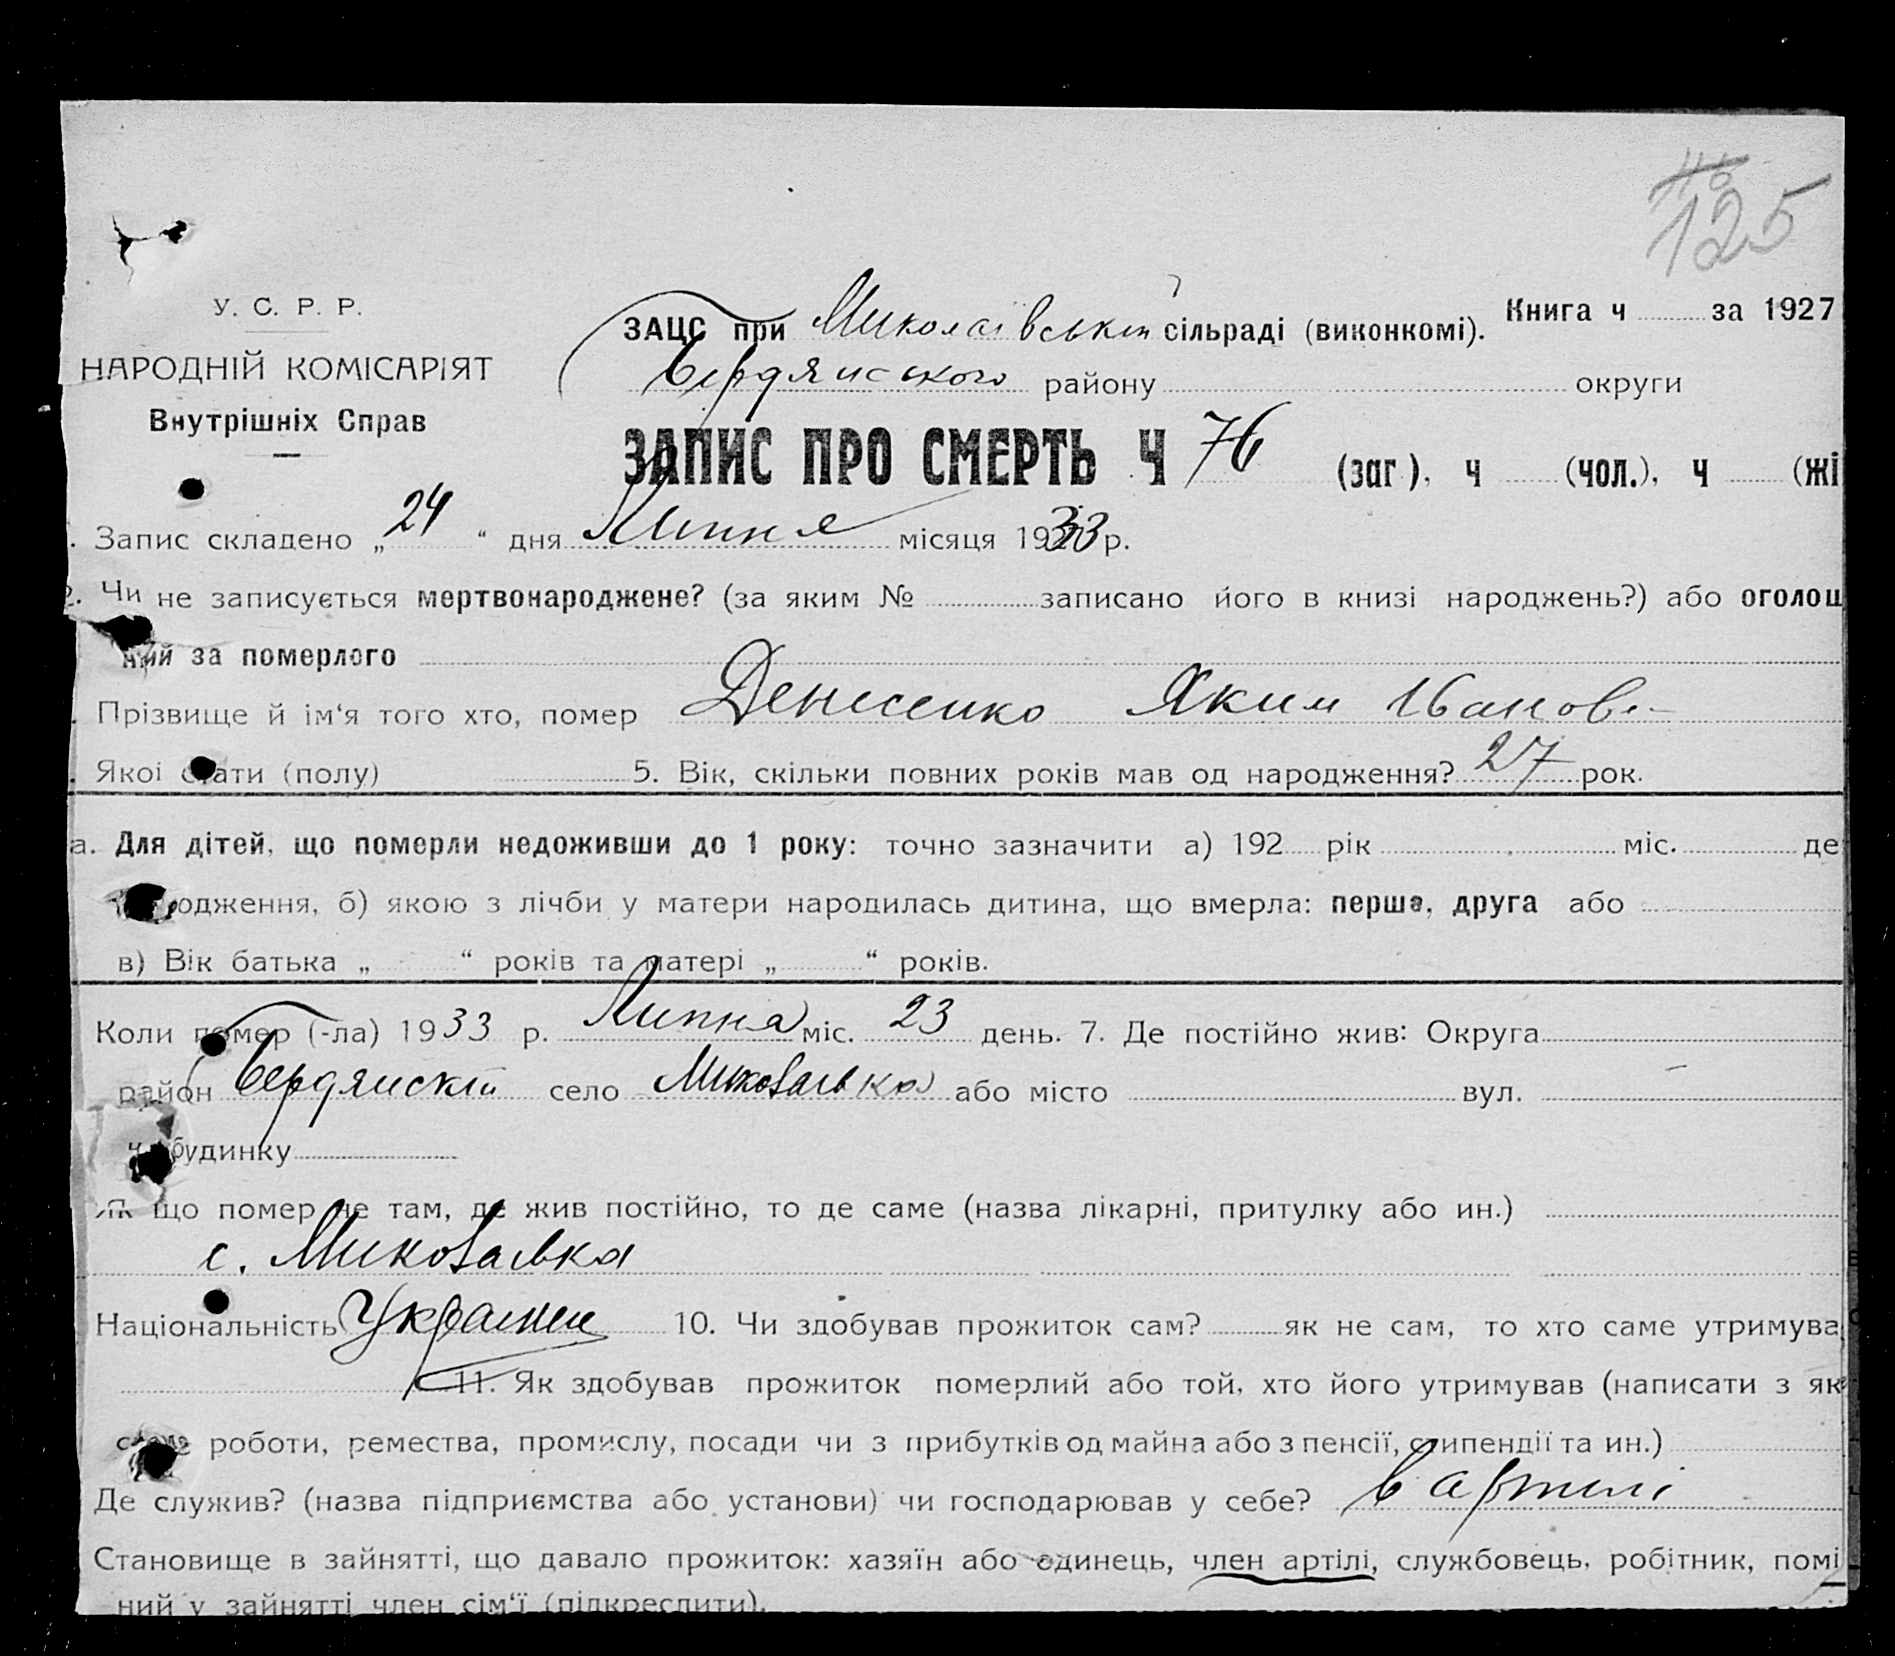 125
У. С. Р. Р.
НАРОДНІЙ КОМІСАРІЯТ
Внутрішніх Справ
Книга ч за 1927
ЗАЦС при Миколаівській сільраді (виконкомі).
Бердянського району округи
ЗАПИС ПРО СМЕРТЬ Ч 76 (заг.), ч (чол.), ч (жі
Запис складено „24“ дня Липня місяця 1933 р.
2. Чи не записується мертвонароджене? (за яким № записано його в книзі народжень?) або оголош
ний за померлого
Прізвище й ім‘я того хто, помер Денисенко Яким Іванов.
Якої стати (полу) 5. Вік, скільки повних років мав од народження? 27 рок.
а. Для дітей, що померли недоживши до 1 року: точно зазначити а) 192 рік міс. де
одження, б) якою з лічби у матери народилась дитина, що вмерла: перша, друга або
в) Вік батька „ “ років та матері „ “ років.
Коли помер (-ла) 1933 р. Липня міс. 23 день. 7. Де постійно жив: Округа
район Бердянскій село Миколаівка або місто вул. —
ч. будинку
Як що помер не там, де жив постійно, то де саме (назва лікарні, притулку або ин.)
с. Миколаівка
Національність 10. Чи здобував прожиток сам? як не сам, то хто саме утримува
11. Як здобував прожиток померлий або той, хто його утримував (написати з як
роботи, ремества, промислу, посади чи з прибутків од майна або з пенсії, стипендії та ин.)
Де служив? (назва підприємства або установи) чи господарював у себе? в артілі
Становище в зайнятті, що давало прожиток: хазяїн або одинець, член артілі, службовець, робітник, помі
ний у зайнятті член сім‘ї (підкреслити).